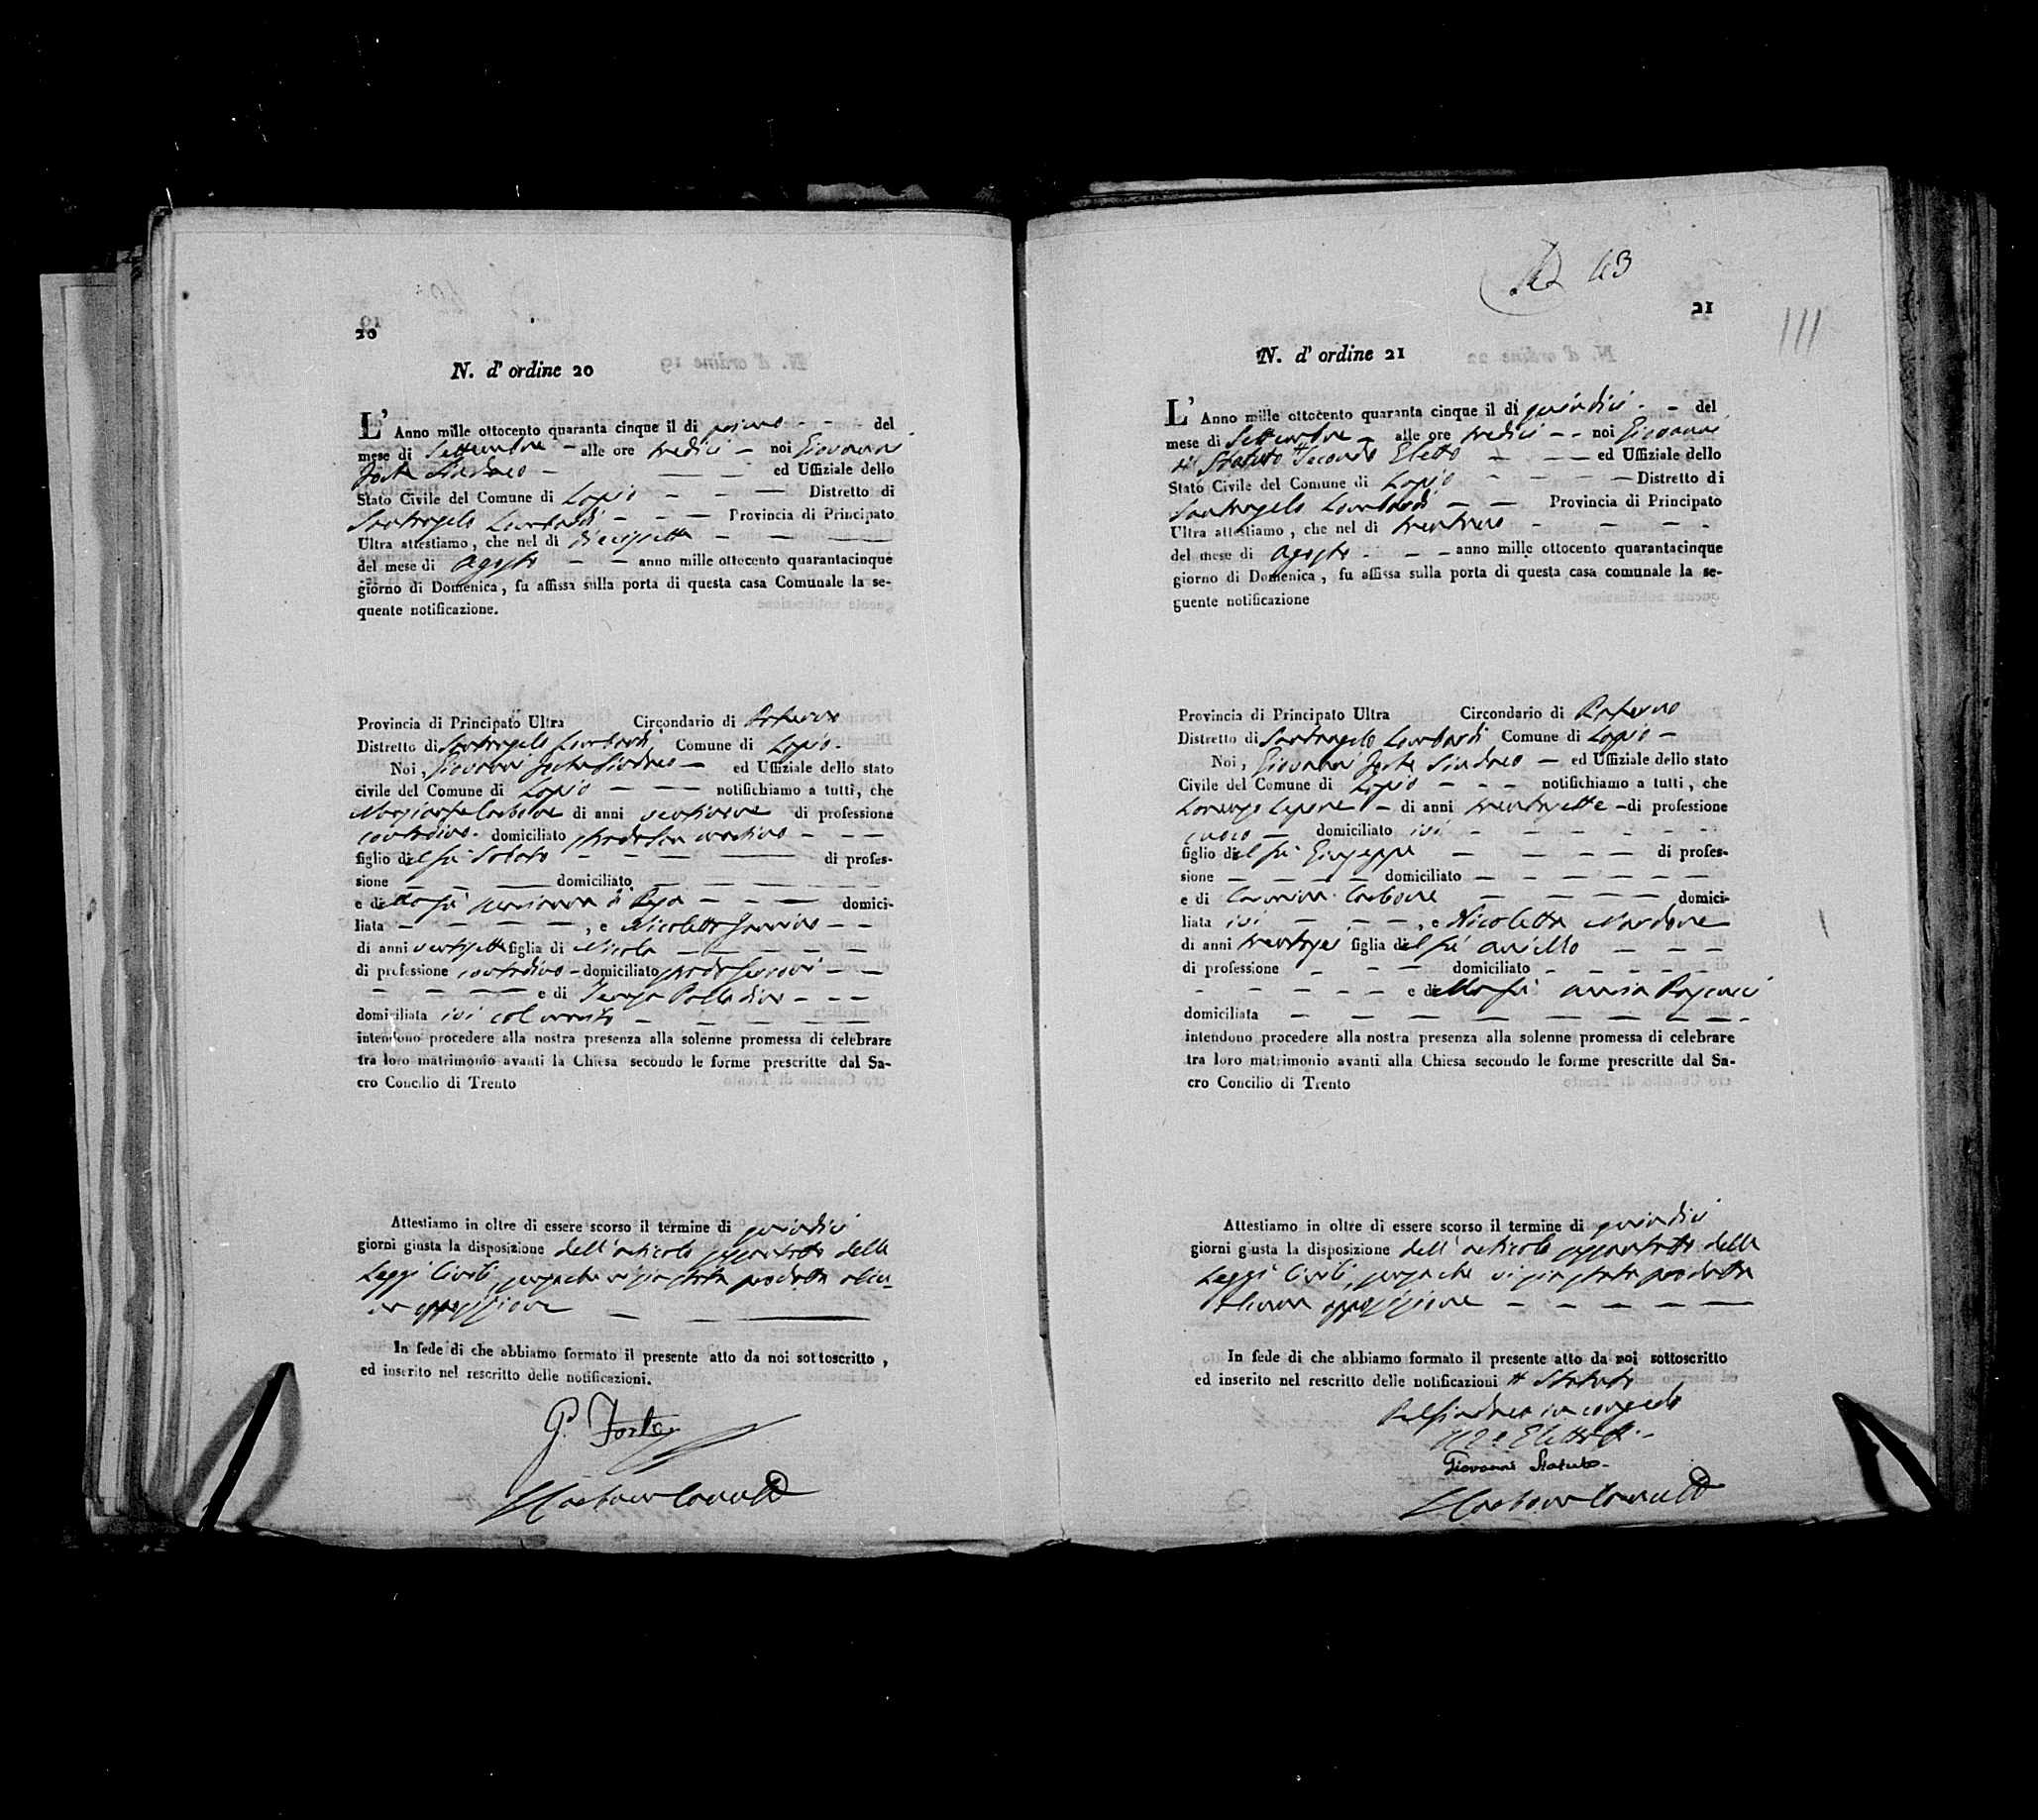 20
N. d' ordine 20
L' Anno mille ottocento quaranta cinque il di primo del
mese di Settembre alle ore tredici noi Giovanni
Forte Sindaco ed Uffiziale dello
Stato Civile del Comune di Lapio Distretto di
Santangelo Lombardi Provincia di Principato
Ultra attestiamo, che nel di diecisette
del mese di Agosto anno mille ottocento quarantacinque
giorno di Domenica, fu affissa sulla porta di questa casa Comunale la se-
quente notificazione.
Provincia di Principato Ultra Circondario di Paterno
Distretto di Santangelo Lombardi Comune di Lapio
Noi, Giovanni Forte Sindaco ed Uffiziale dello stato
civile del Comune di Lapio notifichiamo a tutti, che
Carbone di anni ventinove di professione
contadino domiciliato strada
figlio del fu Sabato di profes-
sione domiciliato
e della fu domici-
liata , e Nicoletta
di anni ventisette figlia di Nicola
di professione contadino domiciliato strada
e di Teresa Palladino
domiciliata ivi col marito
intendono procedere alla nostra presenza alla solenne promessa di celebrare
tra loro matrimonio avanti la Chiesa secondo le forme prescritte dal Sa-
cro Concilio di Trento
Attestiamo in oltre di essere scorso il termine di quindici
giorni giusta la disposizione dell'articolo delle
Leggi Civili, senza che vi sia stata prodotta alcu-
na opposizione
In fede di che abbiamo formato il presente atto da noi sottoscritto,
ed inserito nel rescritto delle notificazioni.
G. Forte
43
21
N. d' ordine 21
L' Anno mille ottocento quaranta cinque il di quindici del
mese di Settembre alle ore tredici noi Giovanni
Statuto Secondo Eletto ed Uffiziale dello
Stato Civile del Comune di Lapio Distretto di
Santangelo Lombardi Provincia di Principato
Ultra attestiamo, che nel di trentuno
del mese di Agosto anno mille ottocento quarantacinque
giorno di Domenica, fu affissa sulla porta di questa casa comunale la se-
guente notificazione
Provincia di Principato Ultra Circondario di Paterno
Distretto di Santangelo Lombardi Comune di Lapio
Noi, Giovanni Forte Sindaco ed Uffiziale dello stato
Civile del Comune di Lapio notifichiamo a tutti, che
Lorenzo Lepore di anni trentasette di professione
cuoco domiciliato ivi
figlio del fu Giuseppe di profes-
sione domiciliato
e di Carmina Carbone domici-
liata ivi , e Nicoletta Nardone
di anni trentasei figlia del fu Aniello
di professione domiciliato
e della fu
domiciliata
intendono procedere alla nostra presenza alla solenne promessa di celebrare
tra loro matrimonio avanti alla Chiesa secondo le forme prescritte dal Sa-
cro Concilio di Trento
Attestiamo in oltre di essere scorso il termine di quindici
giorni giusta la disposizione dell'articolo delle
Leggi Civili, senza che vi sia stata prodotta
alcuna opposizione
In fede di che abbiamo formato il presente atto da noi sottoscritto
ed inserito nel rescritto delle notificazioni Statuto
Pel Sindaco in congedo
Il 2º Eletto
Giovanni Statuto